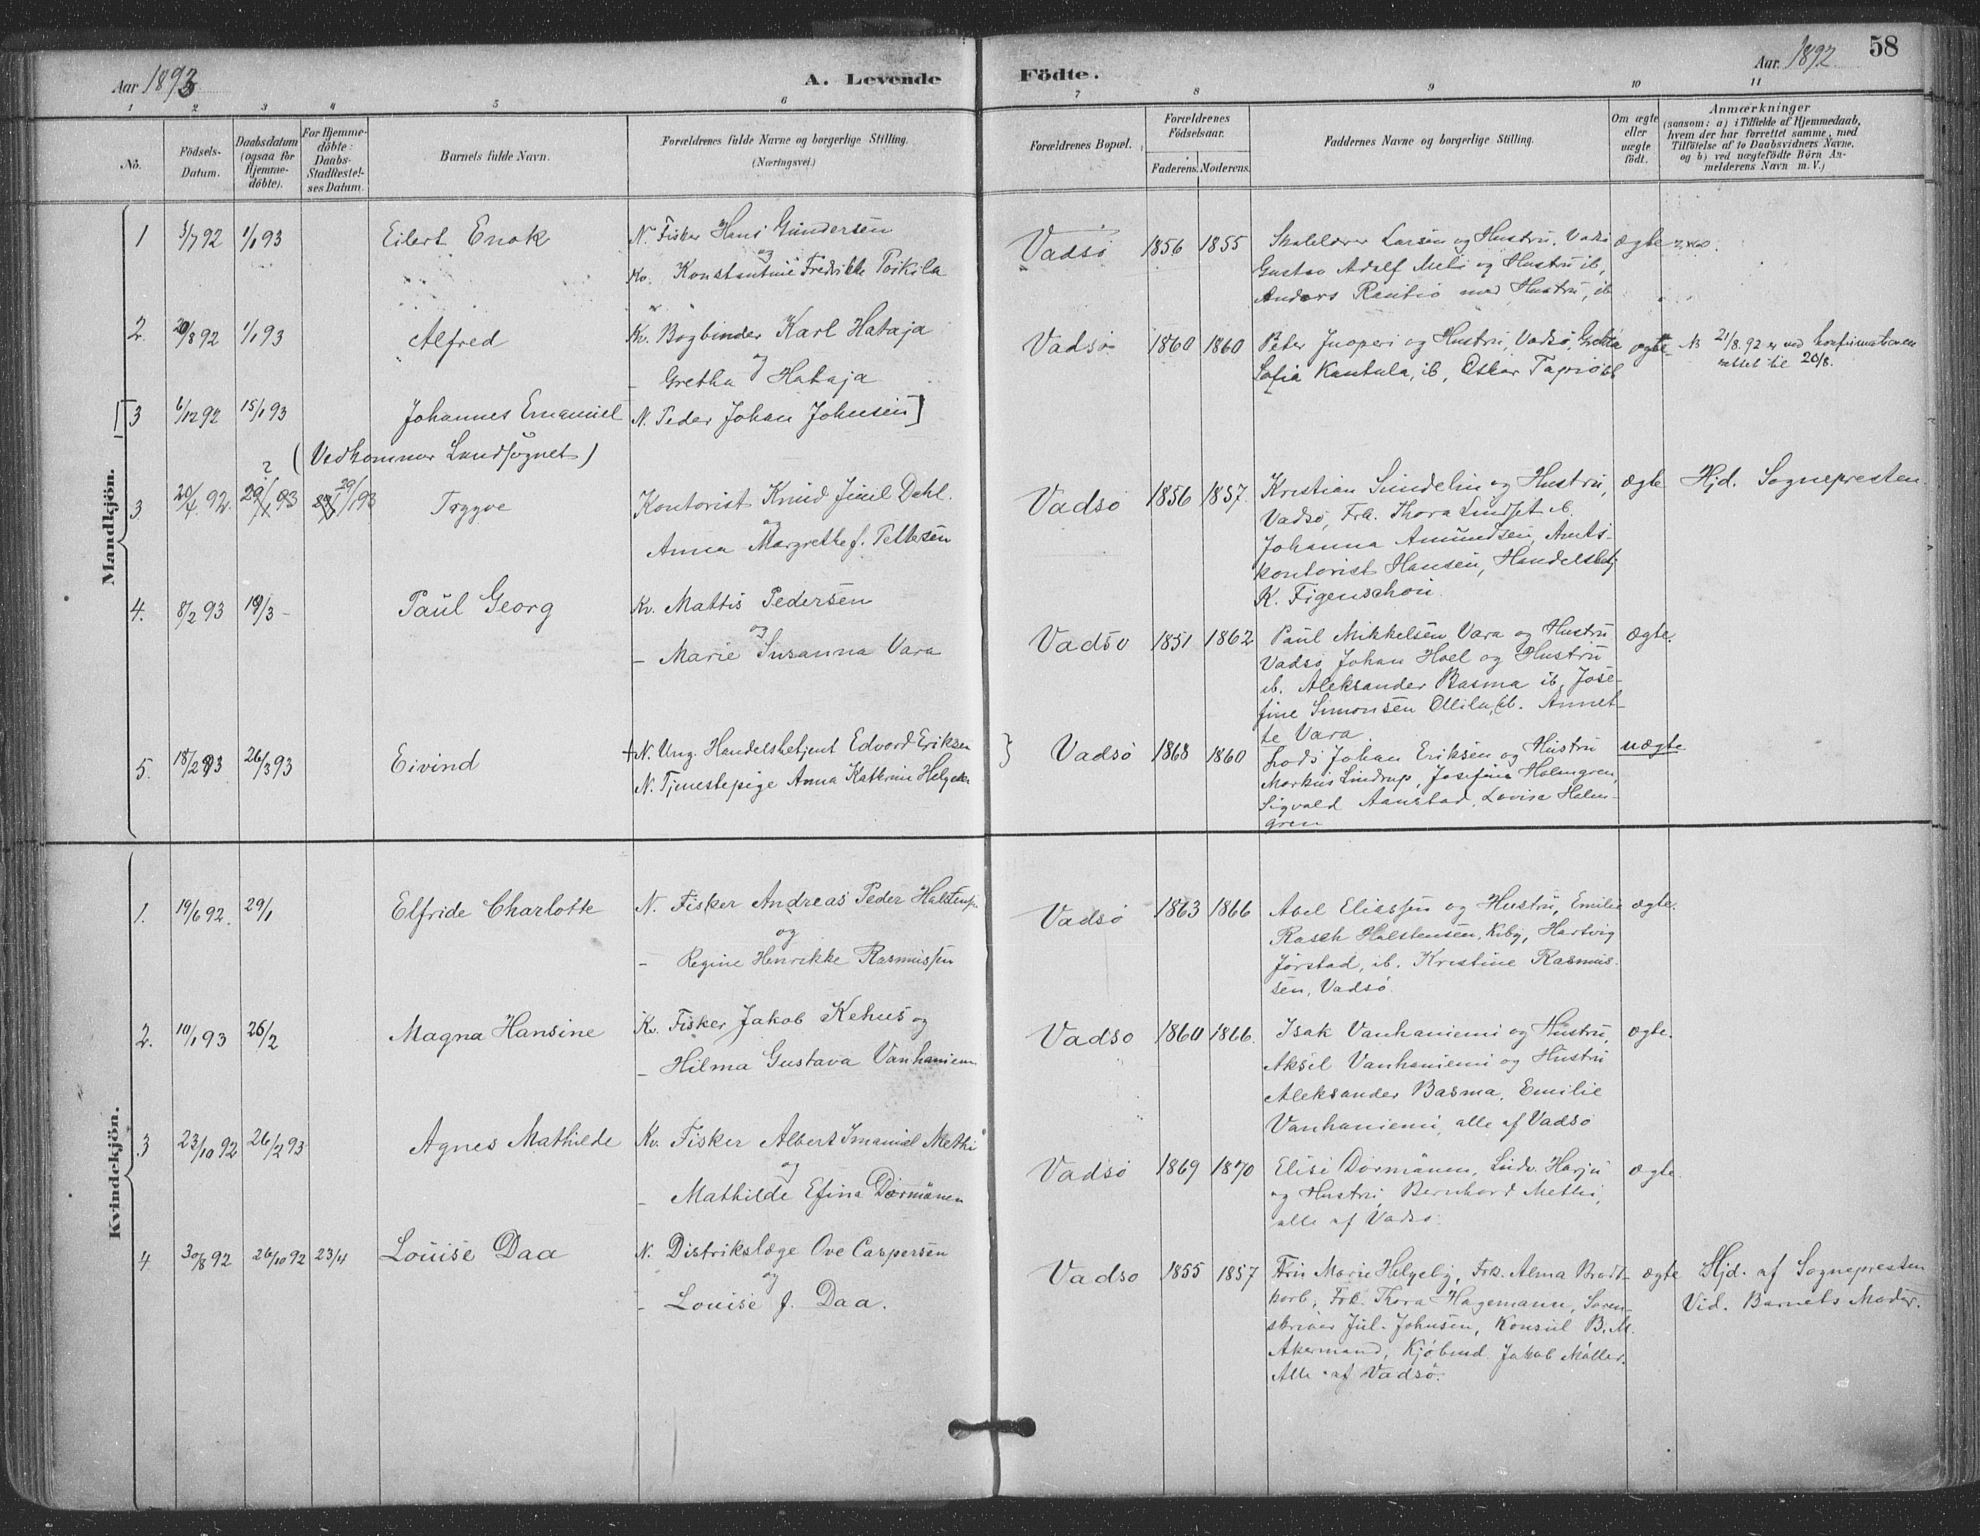 Aar 1893
A. Levende
Födte.
Aar 1892.
58
1 2 3 4 5 6 7 8 9 10 11
No.
Födsels-
Datum.
Daabsdatum
(ogsaa for
Hjemme-
döbte).
For Hjemme-
döbte:
Daabs-
Stadfæstel-
ses Datum.
Barnets fulde Navn.
Forældrenes fulde Navne og borgerlige Stilling.
(Næringsvei.)
Forældrenes Bopæl.
Forældrenes
Födselsaar.
Faderens. Moderens.
Faddernes Navne og borgerlige Stilling.
Om ægte
eller
uægte
födt.
Anmærkninger
(saasom: a) i Tilfælde af Hjemmedaab,
hvem der har forrettet samme, med
Tilföielse af to Daabsvidners Navne,
og b) ved uægtefödte Börn An-
melderens Navn m. V.)
Mandkjön.
1 3/7 92 1/1 93 Eilert Enok
N. Fisker Hans Gundersen
og
Kv. Konstantine Fredrikke Poikila
Vadsö 1856 1855
Larsen og Hustru, Vadsö
Gustav Adolf Meti og Hustru ib,
Anders Rautio med Hustru, ib
ægte
2. 20/8 92 1/1 93 Alfred
Kv. Bogbinder Karl Hataja
og
– Gretha Hataja
Vadsö 1860 1860
Peter Juoperi og Hustru, Vadsö, Gretha
Sofia Kantula, ib, Oskar
ægte
21/8.92 er ved konfirmationen
rettet til 20/8.
3 6/12 92 15/1 93 Johannes Emanuel
N. Peder Johan Johnsen]
(Vedkommer Landsognet)
3 20/4 92. 29/1 93 29/1 93 Tryggve
Kontorist Knud Juul Dahl.
og
Anna Margrethe f. Pettersen
Vadsö 1856 1857.
Kristian Sundelin og Hustru,
Vadsö, Frk. Thora Lindset ib.
Johanna Amundsen, Amts-
kontorist Hansen, Handelsbetj
K. Figenschou.
ægte
Hjd. Sognepresten
4. 8/2 93 19/3 – Paul Georg
Kv. Mattis Pedersen
og
– Marie Susanna Vara
Vadsö 1851 1862
Paul Mikkelsen Vara og Hustru
Vadsö, Johan Hoel og Hustru
ib. Aleksander Basma ib, Jose-
fine Simonsen Ollila, ib. Annet-
te Vara.
ægte.
5. 18/2 93 26/3 93 Eivind
+ N. Ung. Handelsbetjent Edvard Eriksen
N. Tjenestepige Anna Kathrine Helgesen
} Vadsö 1868 1860
Lods Johan Eriksen og Hustru
Markus Lindrup, Josefine Holmgren,
Sigvald Aanstad, Lovise Holm-
gren
uægte
Kvindekjön.
1. 19/6 92. 29/1 Elfride Charlotte
N. Fisker Andreas Peder
og
– Regine Henrikke Rasmussen
Vadsö 1863 1866
Abel Eliassen og Hustru, Emilie
Rasch Halstensen, Kiby, Hartvig
Jörstad, ib. Kristine Rasmus-
sen, Vadsö
ægte.
2. 10/1 93 26/2 Magna Hansine
Kv. Fisker Jakob Kehus og
– Hilma Gustava Vanhaniemi
Vadsö 1860 1866.
Isak Vanhaniemi og Hustru,
Aksel Vanhaniemi og Hustru
Aleksander Basma, Emilie
Vanhaniemi, alle af Vadsö
ægte.
3 23/10 92 26/2 93 Agnes Mathilde
Kv. Fisker Albert Imanuel Methi
og
– Mathilde Efina Dörmänen
Vadsö 1869 1870
Elise Dörmänen, Ludv. Harju
og Hustru, Bernhard Methi,
alle af Vadsö.
ægte.
4 30/8 92 26/10 92 23/4 Louise Daa
N. Distriktslæge Ove Caspersen
og
– Louise f. Daa.
Vadsö 1855 1857
Fru Marie Helgeby, Frk. Alma Brodt-
korb, Frk. Thora Hagemann, Soren-
skriver Jul. Johnsen, Konsul B. M.
Akermand, Kjöbmd. Jakob Möller.
Alle af Vadsö.
ægte
Hjd. af Sognepresten
Vid. Barnets Moder.